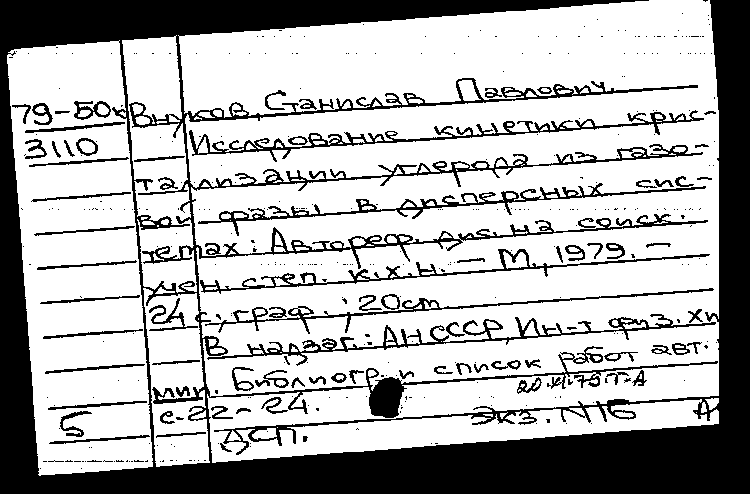 79-50к Внуков, Станислав Павлович.
3110 Исследование кинетики крис-
таллизации углерода из газо-
вой фазы в дисперсных сис-
темах: Автореф. дис. на соиск.
учен. степ. к.х.н. — М., 1979. —
24 с.; граф.; 20cm.
В надзаг.: АН СССР, Ин-т физ. хи
мии. Библиогр. и список работ авт.:
с. 22-24.
5 ДСП. Экз. N16